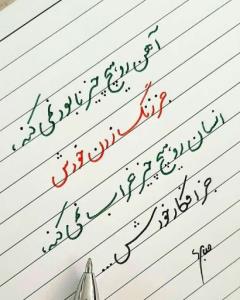 آهن رو هیچ چیز نابود نمی کنه،
جز زنگ زدن خودش
انسان رو هیچ چیز خراب نمی کنه،
جز افکار خودش...